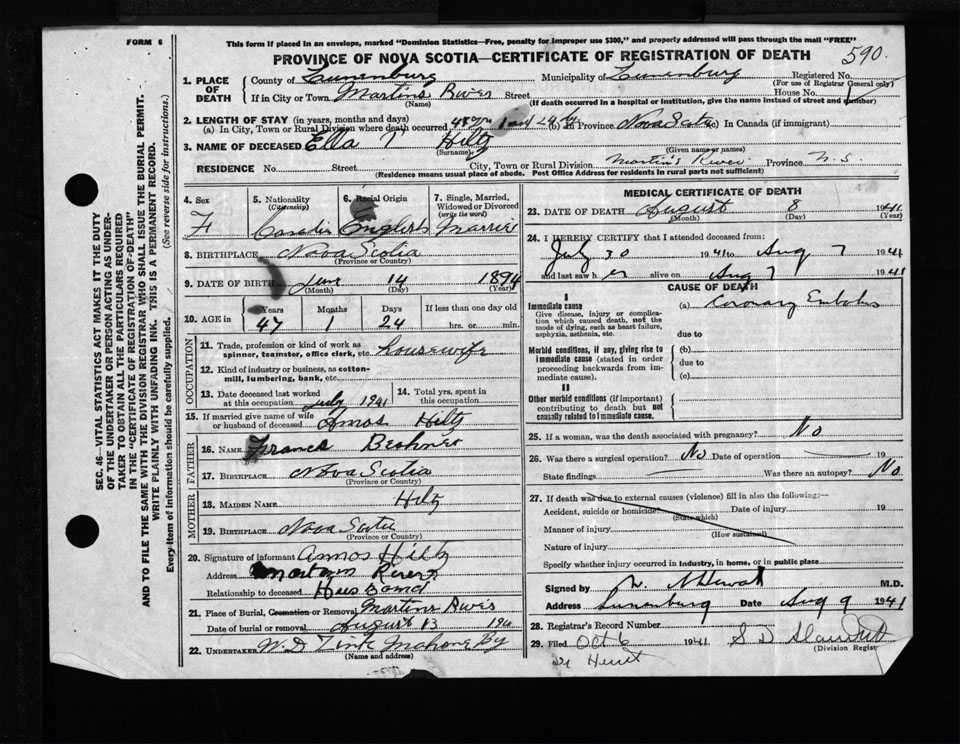 FORM 6
This form if placed in an envelope, marked "Dominion Statistics—Free, penalty for improper use $300," and properly addressed will pass through the mail "FREE"
PROVINCE OF NOVA SCOTIA—CERTIFICATE OF REGISTRATION OF DEATH 590.
1. PLACE OF DEATH
County of Lunenburg Municipality of Lunenburg Registered No.
(For use of Registrar General only)
If in City or Town Martins River Street House No.
(Name) (If death occurred in a hospital or institution, give the name instead of street and number)
2. LENGTH OF STAY (in years, months and days)
(a) In City, Town or Rural Division where death occurred (b) in Province Nova Scotia (c) in Canada (if immigrant)
3. NAME OF DECEASED Ella Hiltz
(Surname) (Given name or names)
RESIDENCE No. Street City, Town or Rural Division Martin's River Province N.S.
(Residence means usual place of abode. Post Office Address for residents in rural parts not sufficient)
4. Sex
F
5. Nationality
(Citizenship)
6. Racial Origin
English
7. Single, Married, Widowed or Divorced
(write the word)
Married
8. BIRTHPLACE Nova Scotia
(Province or Country)
9. DATE OF BIRTH June 14 1894
(Month) (Day) (Year)
10. AGE in Years Months Days If less than one day old
47 1 24 hrs. or min.
OCCUPATION
11. Trade, profession or kind of work as spinner, teamster, office clerk, etc. housewife
12. Kind of industry or business, as cotton-mill, lumbering, bank, etc.
13. Date deceased last worked at this occupation July 1941
14. Total yrs. spent in this occupation
15. If married give name of wife or husband of deceased Amos Hiltz
FATHER
16. NAME
17. BIRTHPLACE Nova Scotia
(Province or Country)
MOTHER
18. MAIDEN NAME Hiltz
19. BIRTHPLACE Nova Scotia
(Province or Country)
20. Signature of informant Amos Hiltz
Address Martins River
Relationship to deceased Husband
21. Place of Burial, Cremation or Removal Martins River
Date of burial or removal August 13 19
22. UNDERTAKER W. D. Zink Mahone By
(Name and address)
MEDICAL CERTIFICATE OF DEATH
23. DATE OF DEATH August 8 1941
(Month) (Day) (Year)
24. I HEREBY CERTIFY that I attended deceased from:
July 30 1941 to Aug 7 1941
and last saw h er alive on Aug 7 1941
CAUSE OF DEATH
I
Immediate cause (a) Coronary Embolus
Give disease, injury or complication which caused death, not the mode of dying, such as heart failure, asphyxia, asthenia, etc.
due to
Morbid conditions, if any, giving rise to immediate cause (stated in order proceeding backwards from immediate cause).
(b)
due to
(c)
II
Other morbid conditions (if important) contributing to death but not causally related to immediate cause.
25. If a woman, was the death associated with pregnancy? No
26. Was there a surgical operation? No Date of operation 19
State findings Was there an autopsy? No
27. If death was due to external causes (violence) fill in also the following:—
Accident, suicide or homicide? Date of injury 19
(State which)
Manner of injury
(How sustained)
Nature of injury
Specify whether injury occurred in industry, in home, or in public place
Signed by M.D.
Address Lunenburg Date Aug 9 1941
28. Registrar's Record Number
29. Filed Oct 6 1941
(Division Registr
SEC. 46—VITAL STATISTICS ACT MAKES IT THE DUTY
OF THE UNDERTAKER OR PERSON ACTING AS UNDER-
TAKER TO OBTAIN ALL THE PARTICULARS REQUIRED
IN THE "CERTIFICATE OF REGISTRATION OF DEATH"
AND TO FILE THE SAME WITH THE DIVISION REGISTRAR WHO SHALL ISSUE THE BURIAL PERMIT.
WRITE PLAINLY WITH UNFADING INK. THIS IS A PERMANENT RECORD.
Every item of information should be carefully supplied. (See reverse side for instructions.)